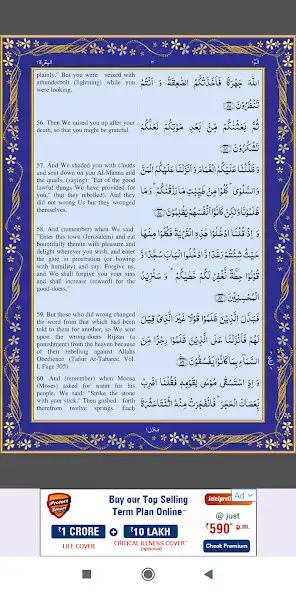 البقرة ٢
٣
الٓمّٓ ١
plainly." But you were seized with
athunderbolt (lightning) while you
were looking.
اللهَ جَهْرَةً فَاَخَذَتْكُمُ الصّٰعِقَةُ وَ اَنْتُمْ
تَنْظُرُوْنَ
56. Then We raised you up after your
death, so that you might be grateful.
ثُمَّ بَعَثْنٰكُمْ مِّنْۢ بَعْدِ مَوْتِكُمْ لَعَلَّكُمْ
تَشْكُرُوْنَ
57. And We shaded you with clouds
and sent down on you Al-Manna and
the quails, (saying): "Eat of the good
lawful things We have provided for
you," (but they rebelled). And they
did not wrong Us but they wronged
themselves.
وَ ظَلَّلْنَا عَلَيْكُمُ الْغَمَامَ وَ اَنْزَلْنَا عَلَيْكُمُ الْمَنَّ
وَ السَّلْوٰى كُلُوْا مِنْ طَيِّبٰتِ مَا رَزَقْنٰكُمْ وَ مَا
ظَلَمُوْنَا وَ لٰكِنْ كَانُوْۤا اَنْفُسَهُمْ يَظْلِمُوْنَ
58. And (remember) when We said:
"Enter this town (Jerusalem) and eat
bountifully therein with pleasure and
delight wherever you wish, and enter
the gate in prostration (or bowing
with humility) and say: Forgive us,
and We shall forgive you your sins
and shall increase (reward) for the
good-doers."
وَ اِذْ قُلْنَا ادْخُلُوْا هٰذِهِ الْقَرْيَةَ فَكُلُوْا مِنْهَا
حَيْثُ شِئْتُمْ رَغَدًا وَّ ادْخُلُوا الْبَابَ سُجَّدًا وَّ
قُوْلُوْا حِطَّةٌ نَّغْفِرْ لَكُمْ خَطٰيٰكُمْ وَ سَنَزِيْدُ
الْمُحْسِنِيْنَ
59. But those who did wrong changed
the word from that which had been
told to them for another, so We sent
upon the wrong-doers Rijzan (a
punishment) from the heaven because
of their rebelling against Allahs
Obedience (Tafsir At-Tabaree, Vol.
I, Page 305).
فَبَدَّلَ الَّذِيْنَ ظَلَمُوْا قَوْلًا غَيْرَ الَّذِيْ قِيْلَ
لَهُمْ فَاَنْزَلْنَا عَلَى الَّذِيْنَ ظَلَمُوْا رِجْزًا مِّنَ
السَّمَآءِ بِمَا كَانُوْا يَفْسُقُوْنَ
60. And (remember) when Moosa
(Moses) asked for water for his
people, We said: "Strike the stone
with your stick." Then gushed forth
therefrom twelve springs. Each
وَ اِذِ اسْتَسْقٰى مُوْسٰى لِقَوْمِهٖ فَقُلْنَا اضْرِبْ
بِّعَصَاكَ الْحَجَرَ فَانْفَجَرَتْ مِنْهُ اثْنَتَا عَشْرَةَ
منزل ١
Buy our Top Selling
Term Plan Online
Ad
₹1 CRORE
+
₹10 LAKH
LIFE COVER
CRITICAL ILLNESS COVER
(optional)
@ just
₹590 p.m.
Check Premium